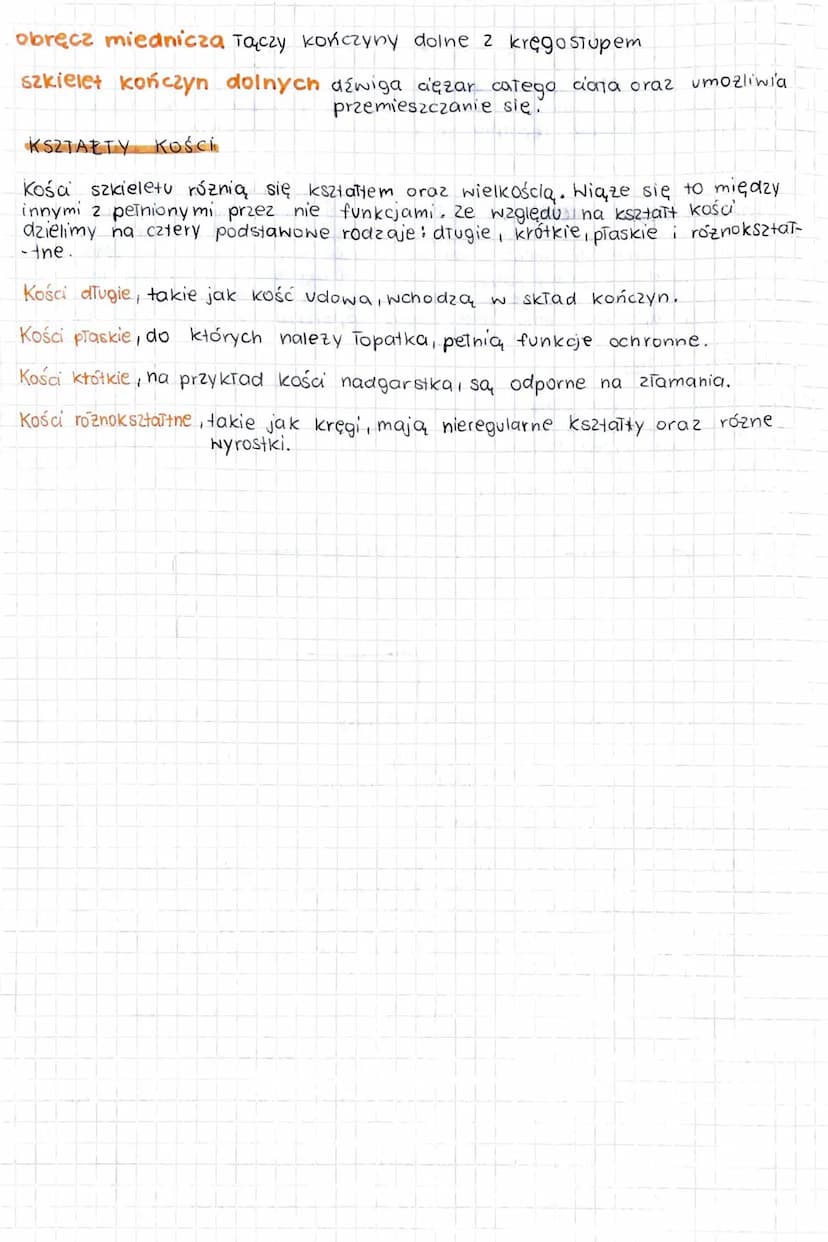 obręcz miednicza łączy kończyny dolne z kręgosłupem
szkielet kończyn dolnych dźwiga ciężar całego ciała oraz umożliwia
przemieszczanie się.
KSZTAŁTY KOŚCI
Kości szkieletu różnią się kształtem oraz wielkością. Wiąże się to między
innymi z pełnionymi przez nie funkcjami. Ze względu na kształt kości
dzielimy na cztery podstawowe rodzaje: długie, krótkie, płaskie i różnokształ-
-tne.
Kości długie, takie jak kość udowa, wchodzą w skład kończyn.
Kości płaskie, do których należy łopatka, pełnią funkcje ochronne.
Kości któtkie, na przykład kości nadgarstka, są odporne na złamania.
Kości różnokształtne, takie jak kręgi, mają nieregularne kształty oraz różne
wyrostki.